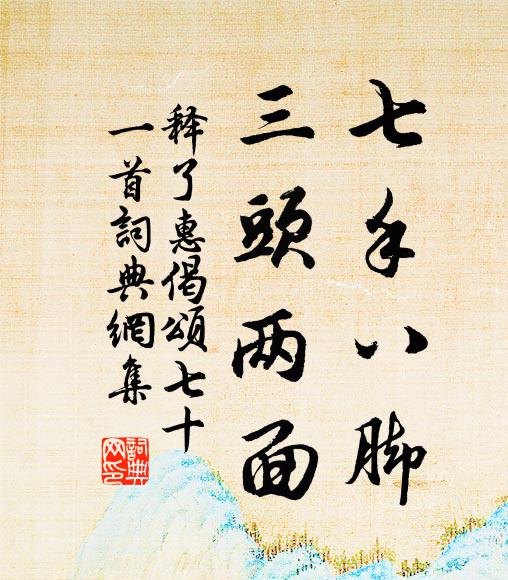 七手八脚
三頭两面
释了惠偈頌七十
一首詞典網集
詞典网印